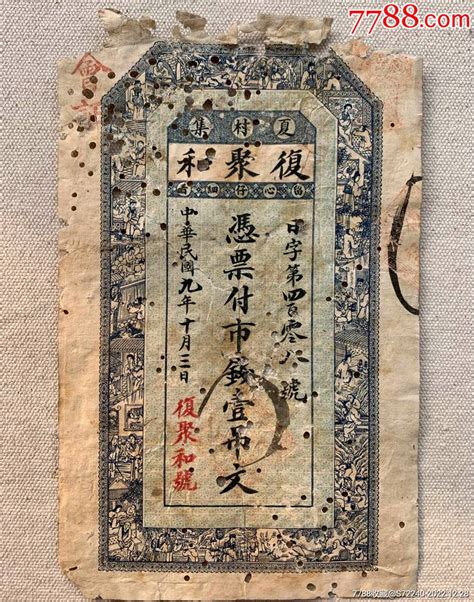 7788.com
會
夏村集
復聚和
心仔細看
日字第四百零八號
憑票付市錢壹吊文
中華民國九年十月三日
復聚和號
7788收藏@S72240-2022-12-28